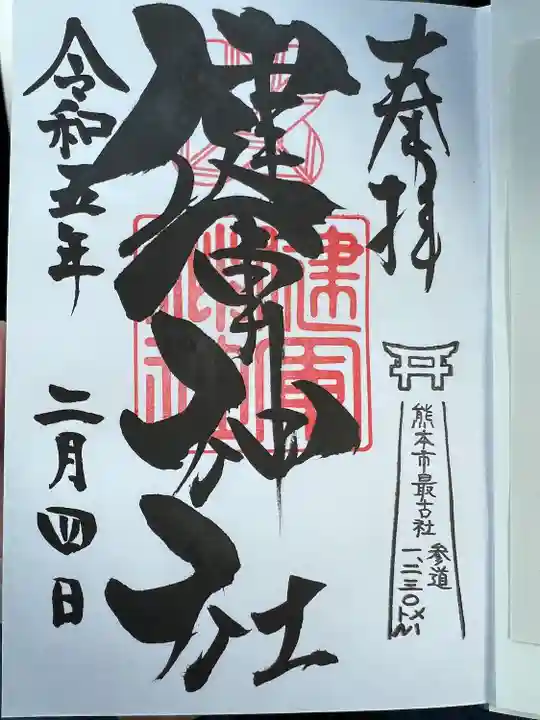 奉拝
熊本市最古社
参道
一、二三〇メートル
健軍神社
令和五年
二月四日